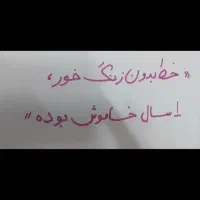 « خط بدون زنگ خور ،
۱ سال خاموش بوده »